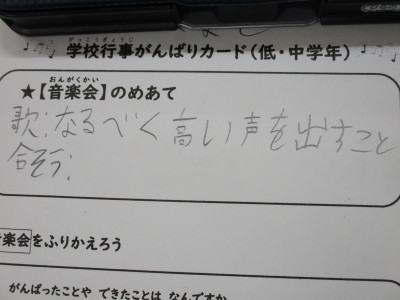 学校行事がんばりカード(低・中学年)
★【音楽会】のめあて
歌:なるべく高い声を出すこと
合そう:
音楽会をふりかえろう
がんばったことや できたことは なんですか